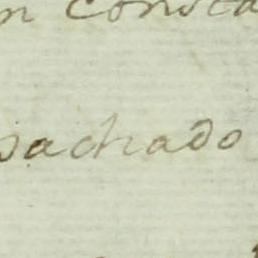 n Consta
pachado